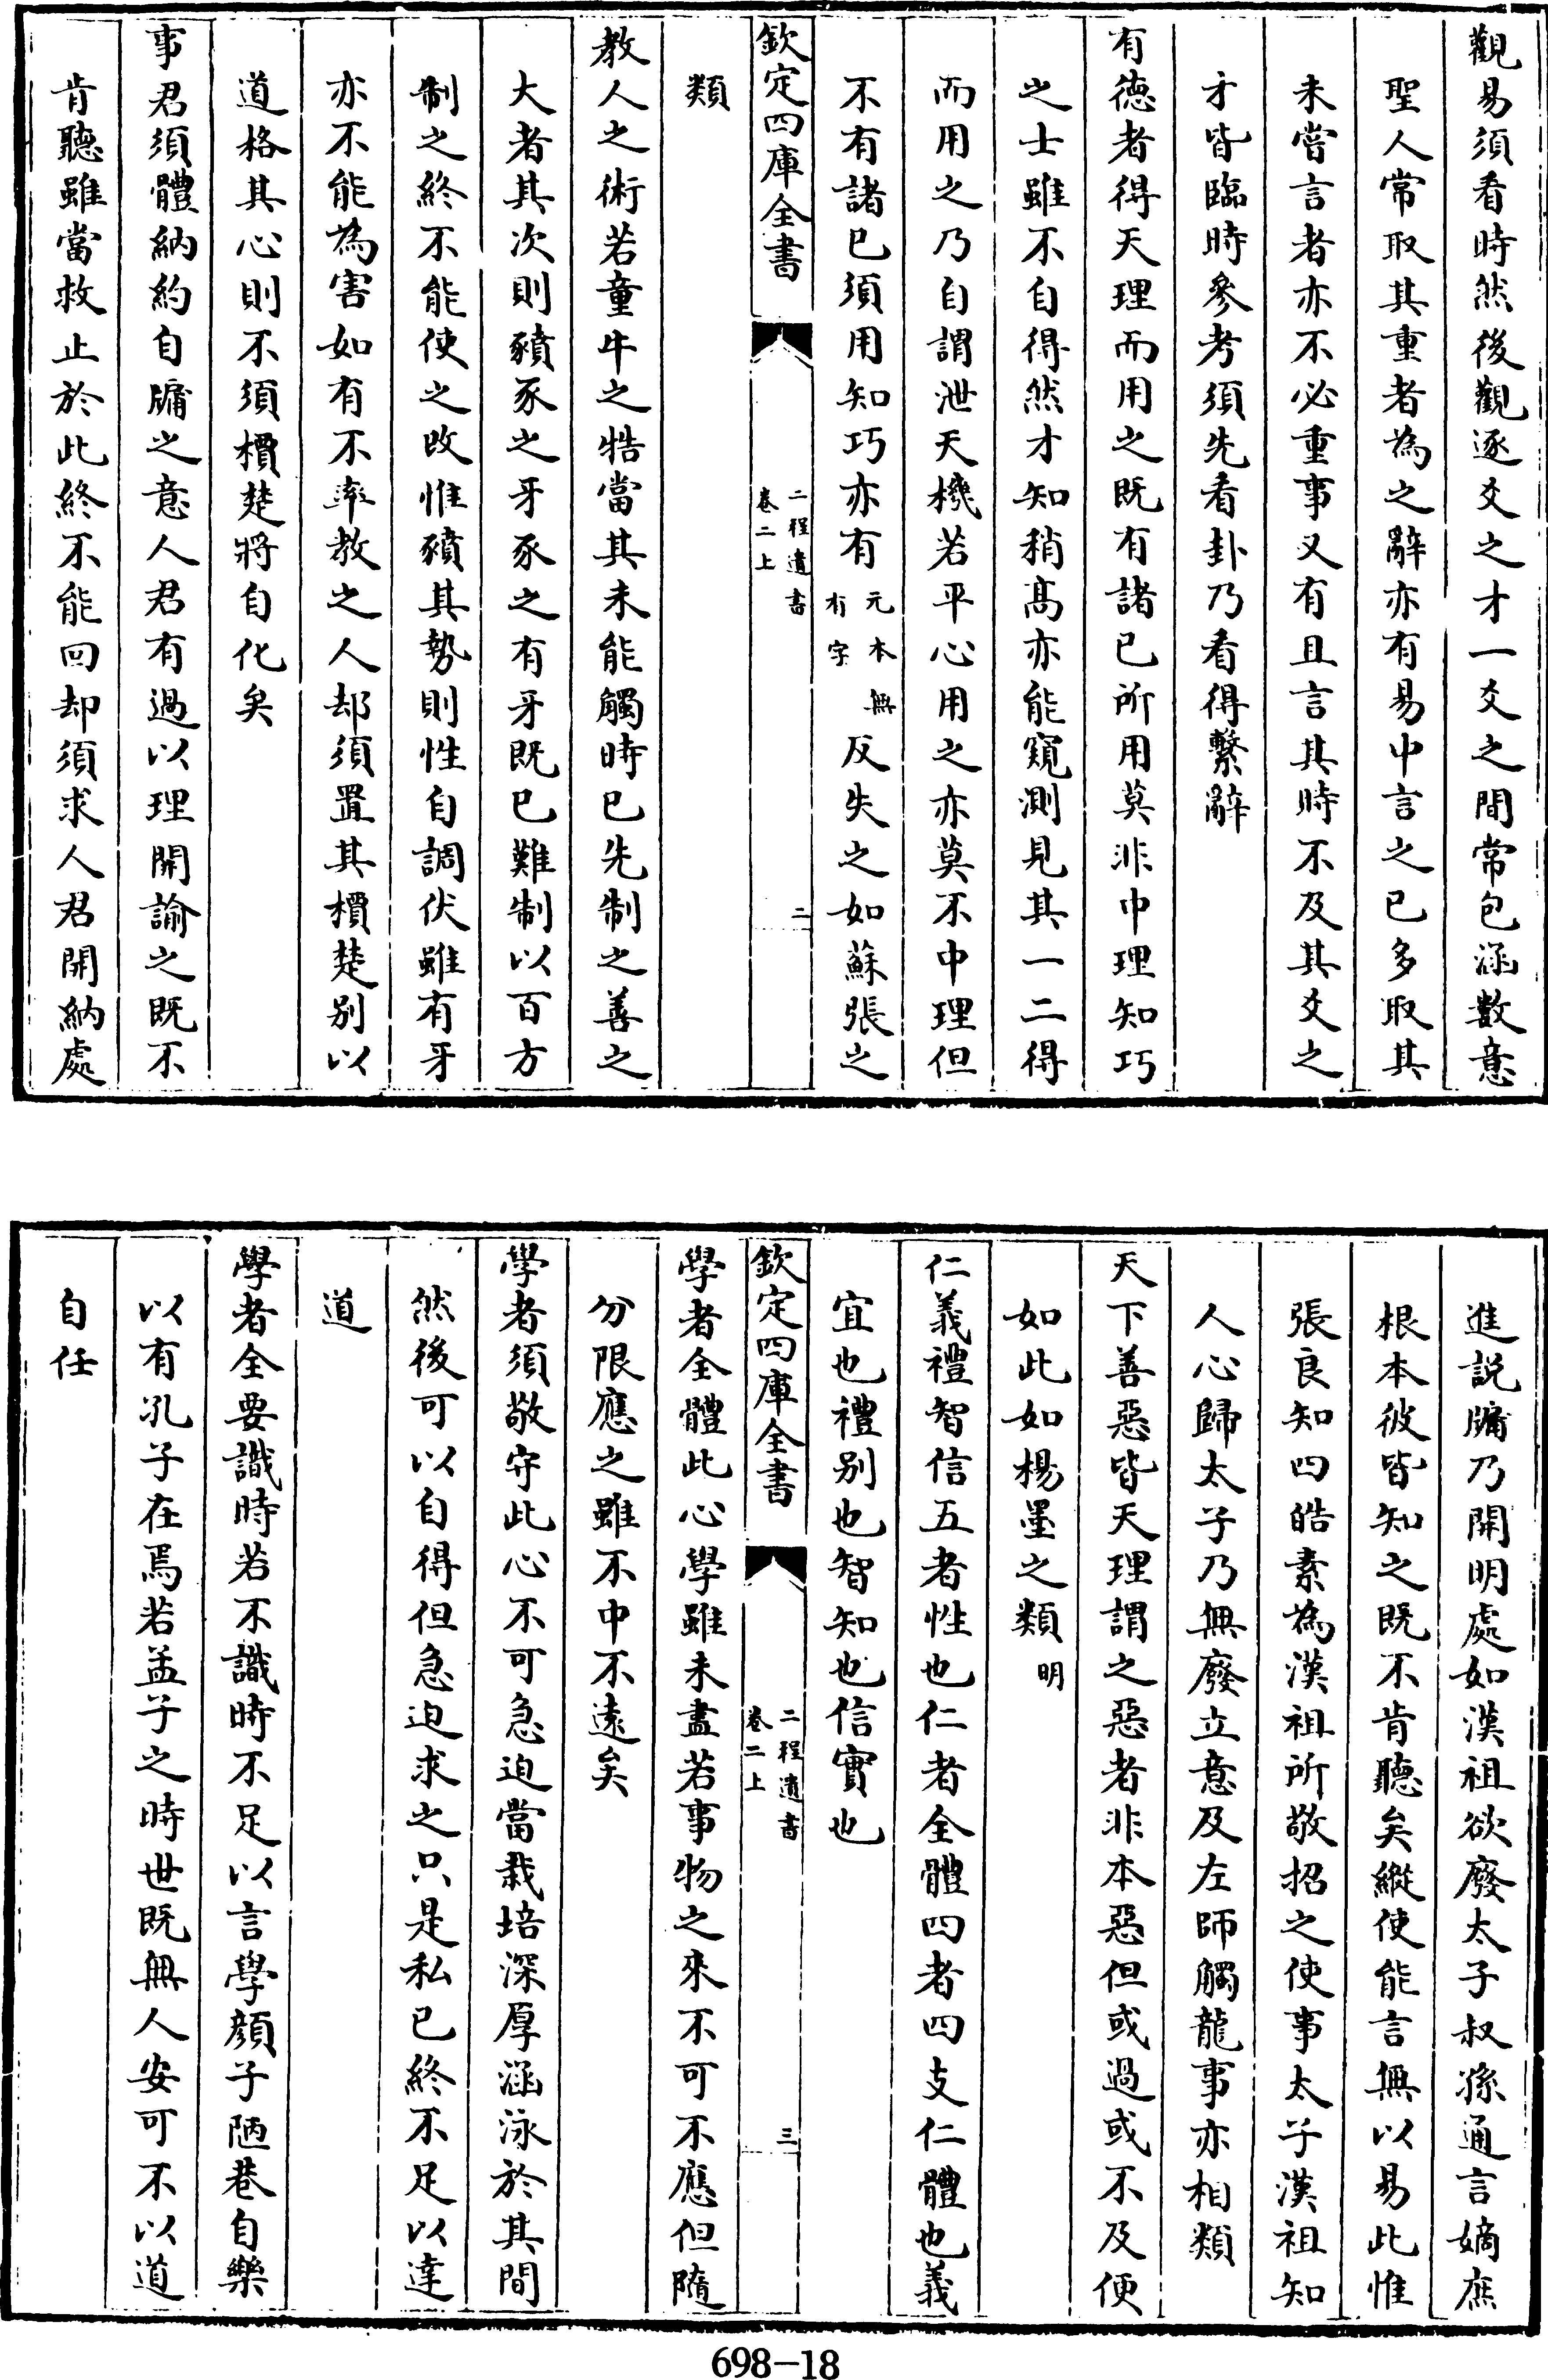 觀易須看時然後觀逐爻之才一爻之間常包涵數意
聖人常取其重者為之辭亦有易中言之已多取其
未嘗言者亦不必重事又有且言其時不及其爻之
才皆臨時參考須先看卦乃看得繫辭
有徳者得天理而用之既有諸已所用莫非中理知巧
之士雖不自得然才知稍髙亦能窺測見其一二得
而用之乃自謂泄天機若平心用之亦莫不中理但
不有諸已須用知巧亦有元本無有字反失之如蘇張之
欽定四庫全書
二程遺書
卷二上
二
類
教人之術若童牛之牿當其未能觸時已先制之善之
大者其次則豶豕之牙豕之有牙既已難制以百方
制之終不能使之改惟豶其勢則性自調伏雖有牙
亦不能為害如有不率教之人却須置其檟楚别以
道格其心則不須檟楚將自化矣
事君須體納約自牖之意人君有過以理開諭之既不
肯聽雖當救止於此終不能回却須求人君開納處
進説牖乃開明處如漢祖欲廢太子叔孫通言嫡庶
根本彼皆知之既不肯聽矣縱使能言無以易此惟
張良知四皓素為漢祖所敬招之使事太子漢祖知
人心歸太子乃無廢立意及左師觸龍事亦相類
天下善惡皆天理謂之惡者非本惡但或過或不及便
如此如楊墨之類明
仁義禮智信五者性也仁者全體四者四支仁體也義
宜也禮别也智知也信實也
欽定四庫全書
二程遺書
卷二上
三
學者全體此心學雖未盡若事物之來不可不應但隨
分限應之雖不中不逺矣
學者須敬守此心不可急迫當栽培深厚涵泳於其間
然後可以自得但急迫求之只是私已終不足以達
道
學者全要識時若不識時不足以言學顔子陋巷自樂
以有孔子在焉若孟子之時世既無人安可不以道
自任
698-18